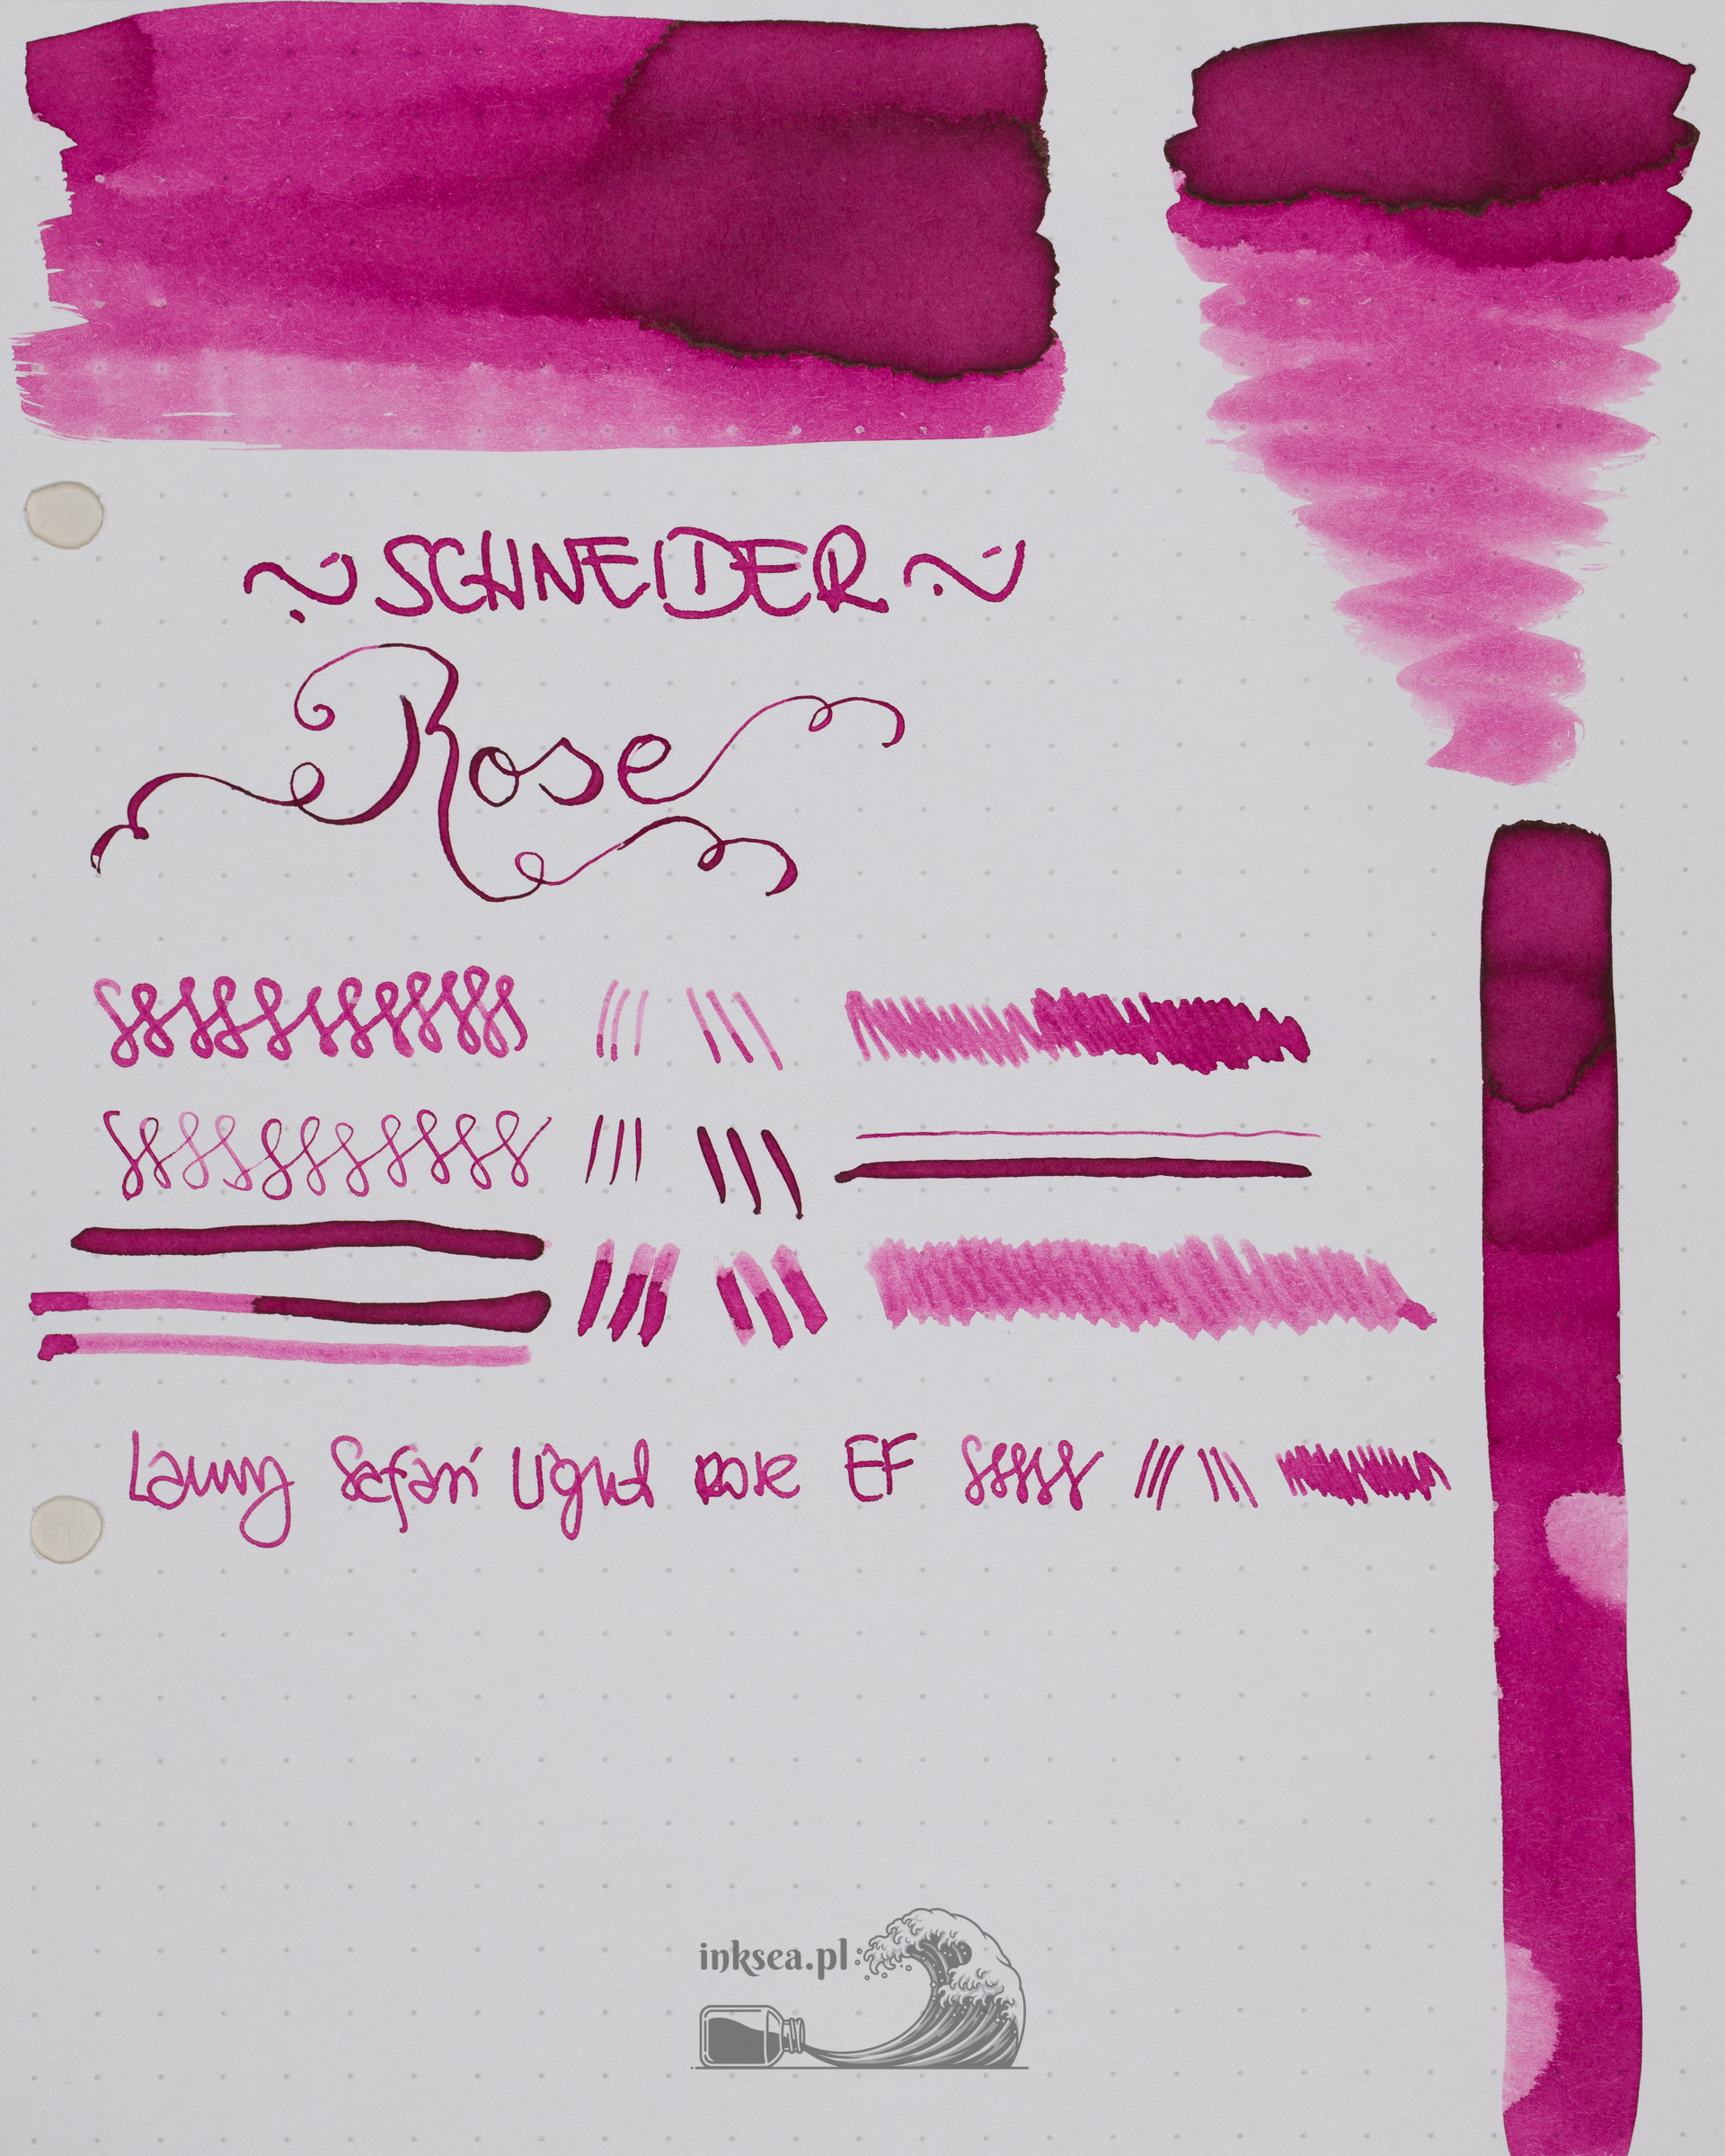 ~ SCHNEIDER ~
Rose
Lamy Safari Light rose EF
inksea.pl